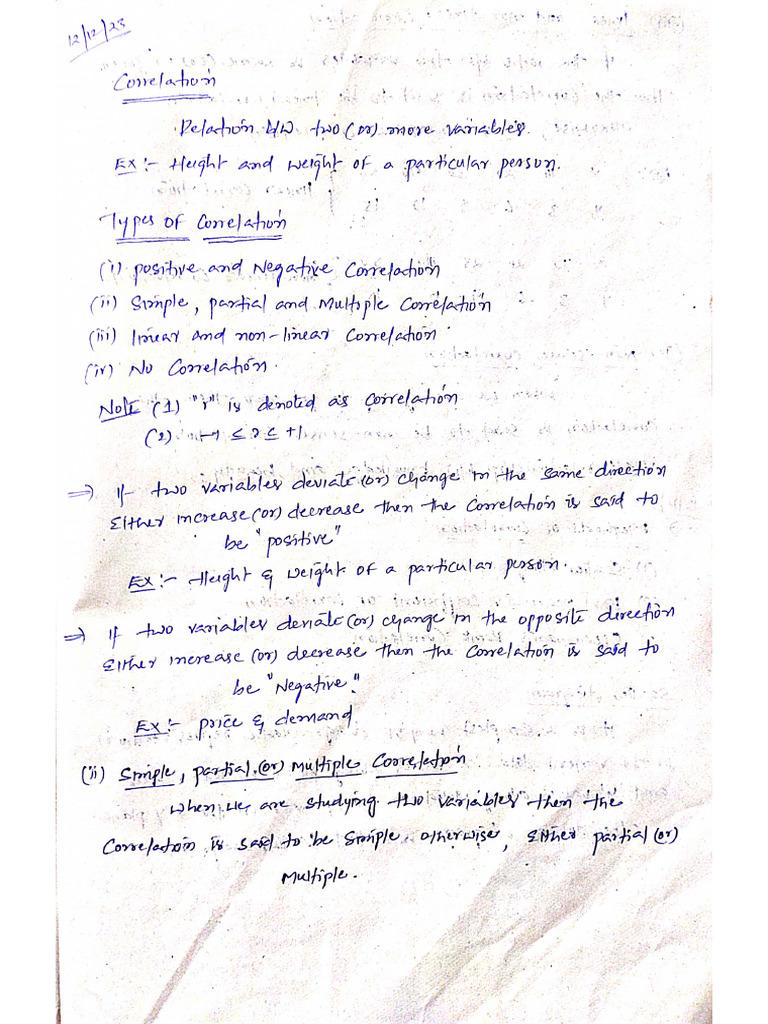 12/12/23
Correlation
Relation b/w two (or) more variables.
Ex :- Height and weight of a particular person.
Types of Correlation
(i) positive and Negative Correlation
(ii) Simple, partial and Multiple Correlation
(iii) linear and non-linear Correlation
(iv) No Correlation.
Note (1) "r" is denoted as correlation
(2) -1 ≤ r ≤ +1
⇒ If two variables deviate (or) change in the same direction
Either increase (or) decrease then the Correlation is said to
be "positive"
Ex :- Height & weight of a particular person.
⇒ If two variables deviate (or) change in the opposite direction
Either increase (or) decrease then the Correlation is said to
be "Negative".
Ex :- price & demand
(ii) Simple, partial (or) Multiple Correlation
When we are studying two variables then the
Correlation is said to be Simple otherwise, Either partial (or)
Multiple.